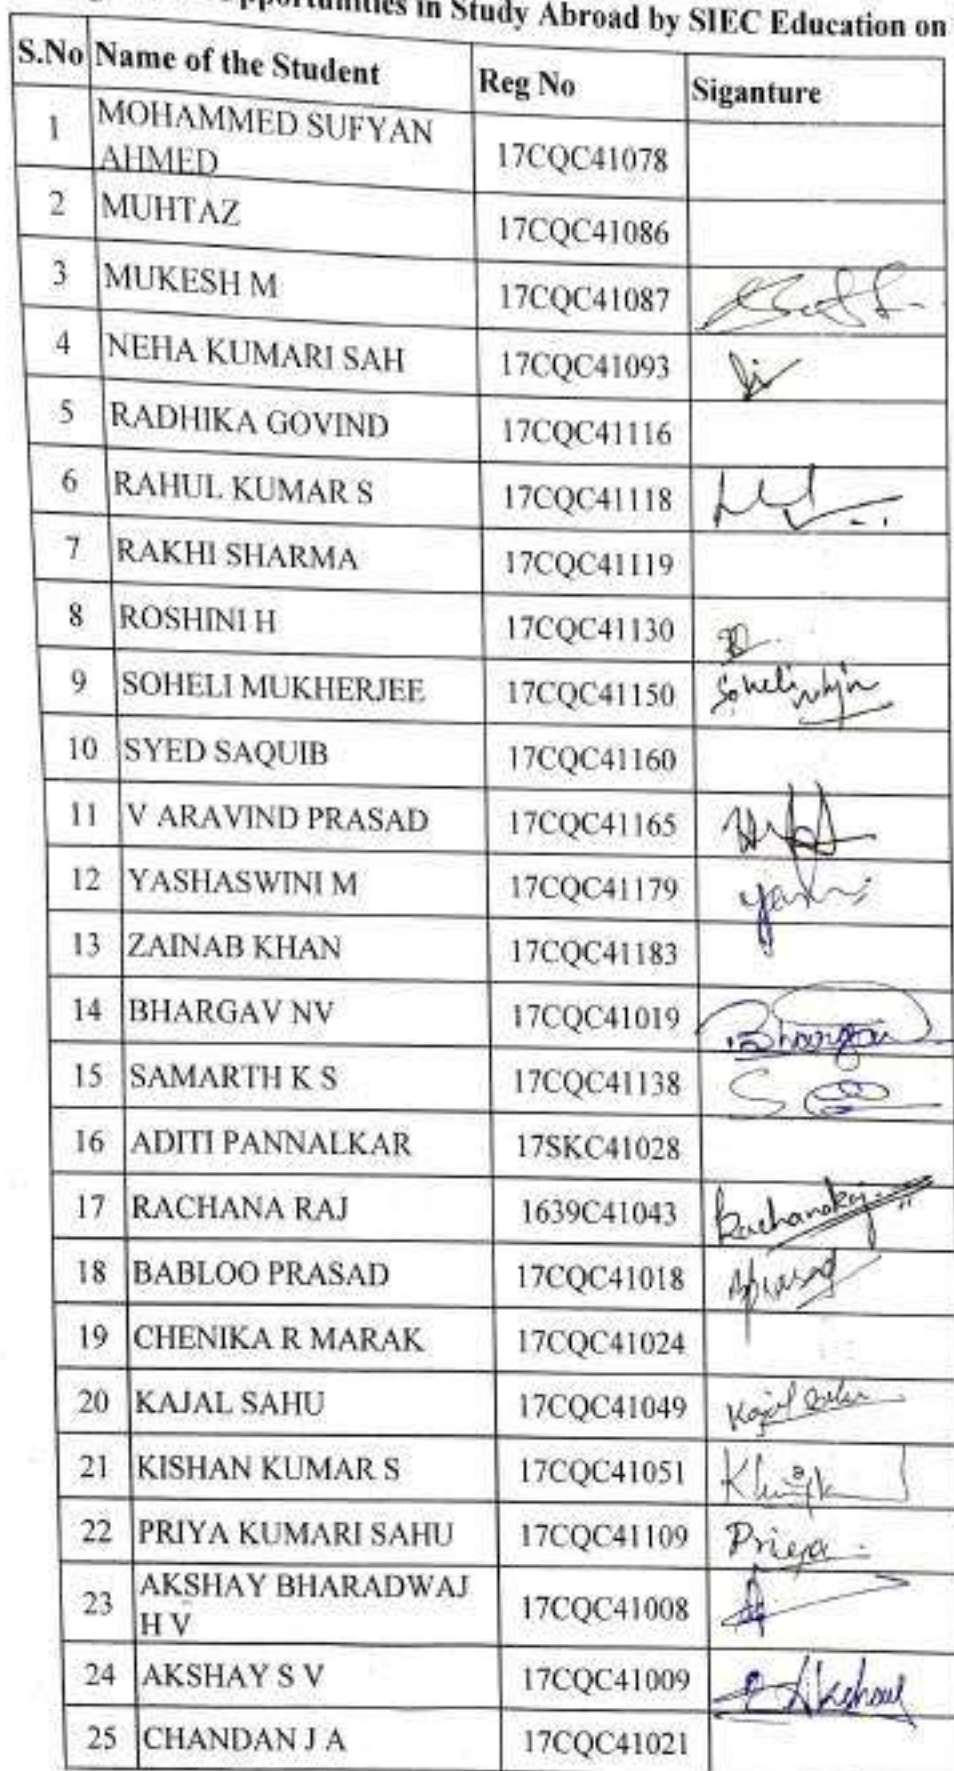 Opportunities in Study Abroad by SIEC Education on
S.No Name of the Student Reg No Siganture
1 MOHAMMED SUFYAN AHMED 17CQC41078
2 MUHTAZ 17CQC41086
3 MUKESH M 17CQC41087
4 NEHA KUMARI SAH 17CQC41093
5 RADHIKA GOVIND 17CQC41116
6 RAHUL KUMAR S 17CQC41118
7 RAKHI SHARMA 17CQC41119
8 ROSHINI H 17CQC41130
9 SOHELI MUKHERJEE 17CQC41150 Soheli
10 SYED SAQUIB 17CQC41160
11 V ARAVIND PRASAD 17CQC41165
12 YASHASWINI M 17CQC41179
13 ZAINAB KHAN 17CQC41183
14 BHARGAV NV 17CQC41019 Bhargav
15 SAMARTH K S 17CQC41138
16 ADITI PANNALKAR 17SKC41028
17 RACHANA RAJ 1639C41043 Rachana Raj
18 BABLOO PRASAD 17CQC41018
19 CHENIKA R MARAK 17CQC41024
20 KAJAL SAHU 17CQC41049 Kajal Sahu
21 KISHAN KUMAR S 17CQC41051
22 PRIYA KUMARI SAHU 17CQC41109 Priya
23 AKSHAY BHARADWAJ H V 17CQC41008
24 AKSHAY S V 17CQC41009 Akshay
25 CHANDAN J A 17CQC41021